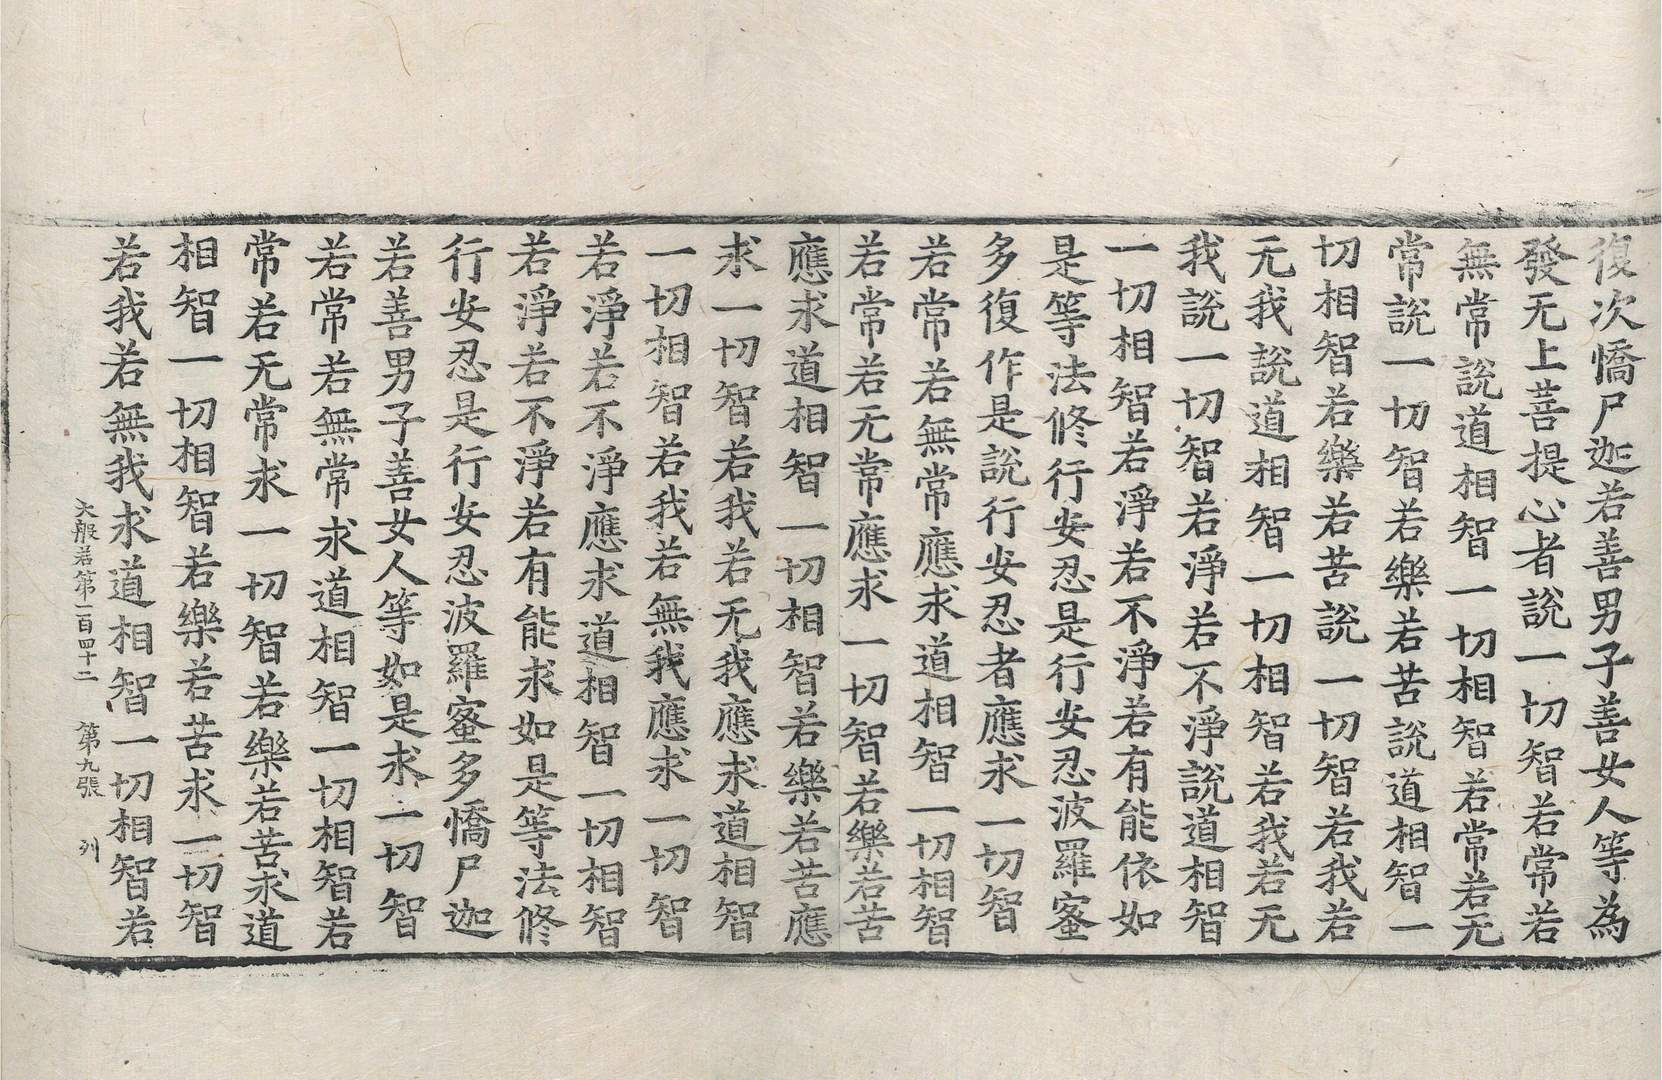 復次憍尸迦若善男子善女人等為
發无上菩提心者說一切智若常若
無常說道相智一切相智若常若无
常說一切智若樂若苦說道相智一
切相智若樂若苦說一切智若我若
无我說道相智一切相智若我若无
我說一切智若淨若不淨說道相智
一切相智若淨若不淨若有能依如
是等法修行安忍是行安忍波羅蜜
多復作是說行安忍者應求一切智
若常若無常應求道相智一切相智
若常若无常應求一切智若樂若苦
應求道相智一切相智若樂若苦應
求一切智若我若无我應求道相智
一切相智若我若無我應求一切智
若淨若不淨應求道相智一切相智
若淨若不淨若有能求如是等法修
行安忍是行安忍波羅蜜多憍尸迦
若善男子善女人等如是求一切智
若常若無常求道相智一切相智若
常若无常求一切智若樂若苦求道
相智一切相智若樂若苦求一切智
若我若無我求道相智一切相智若
大般若第一百四十二 第九張 列